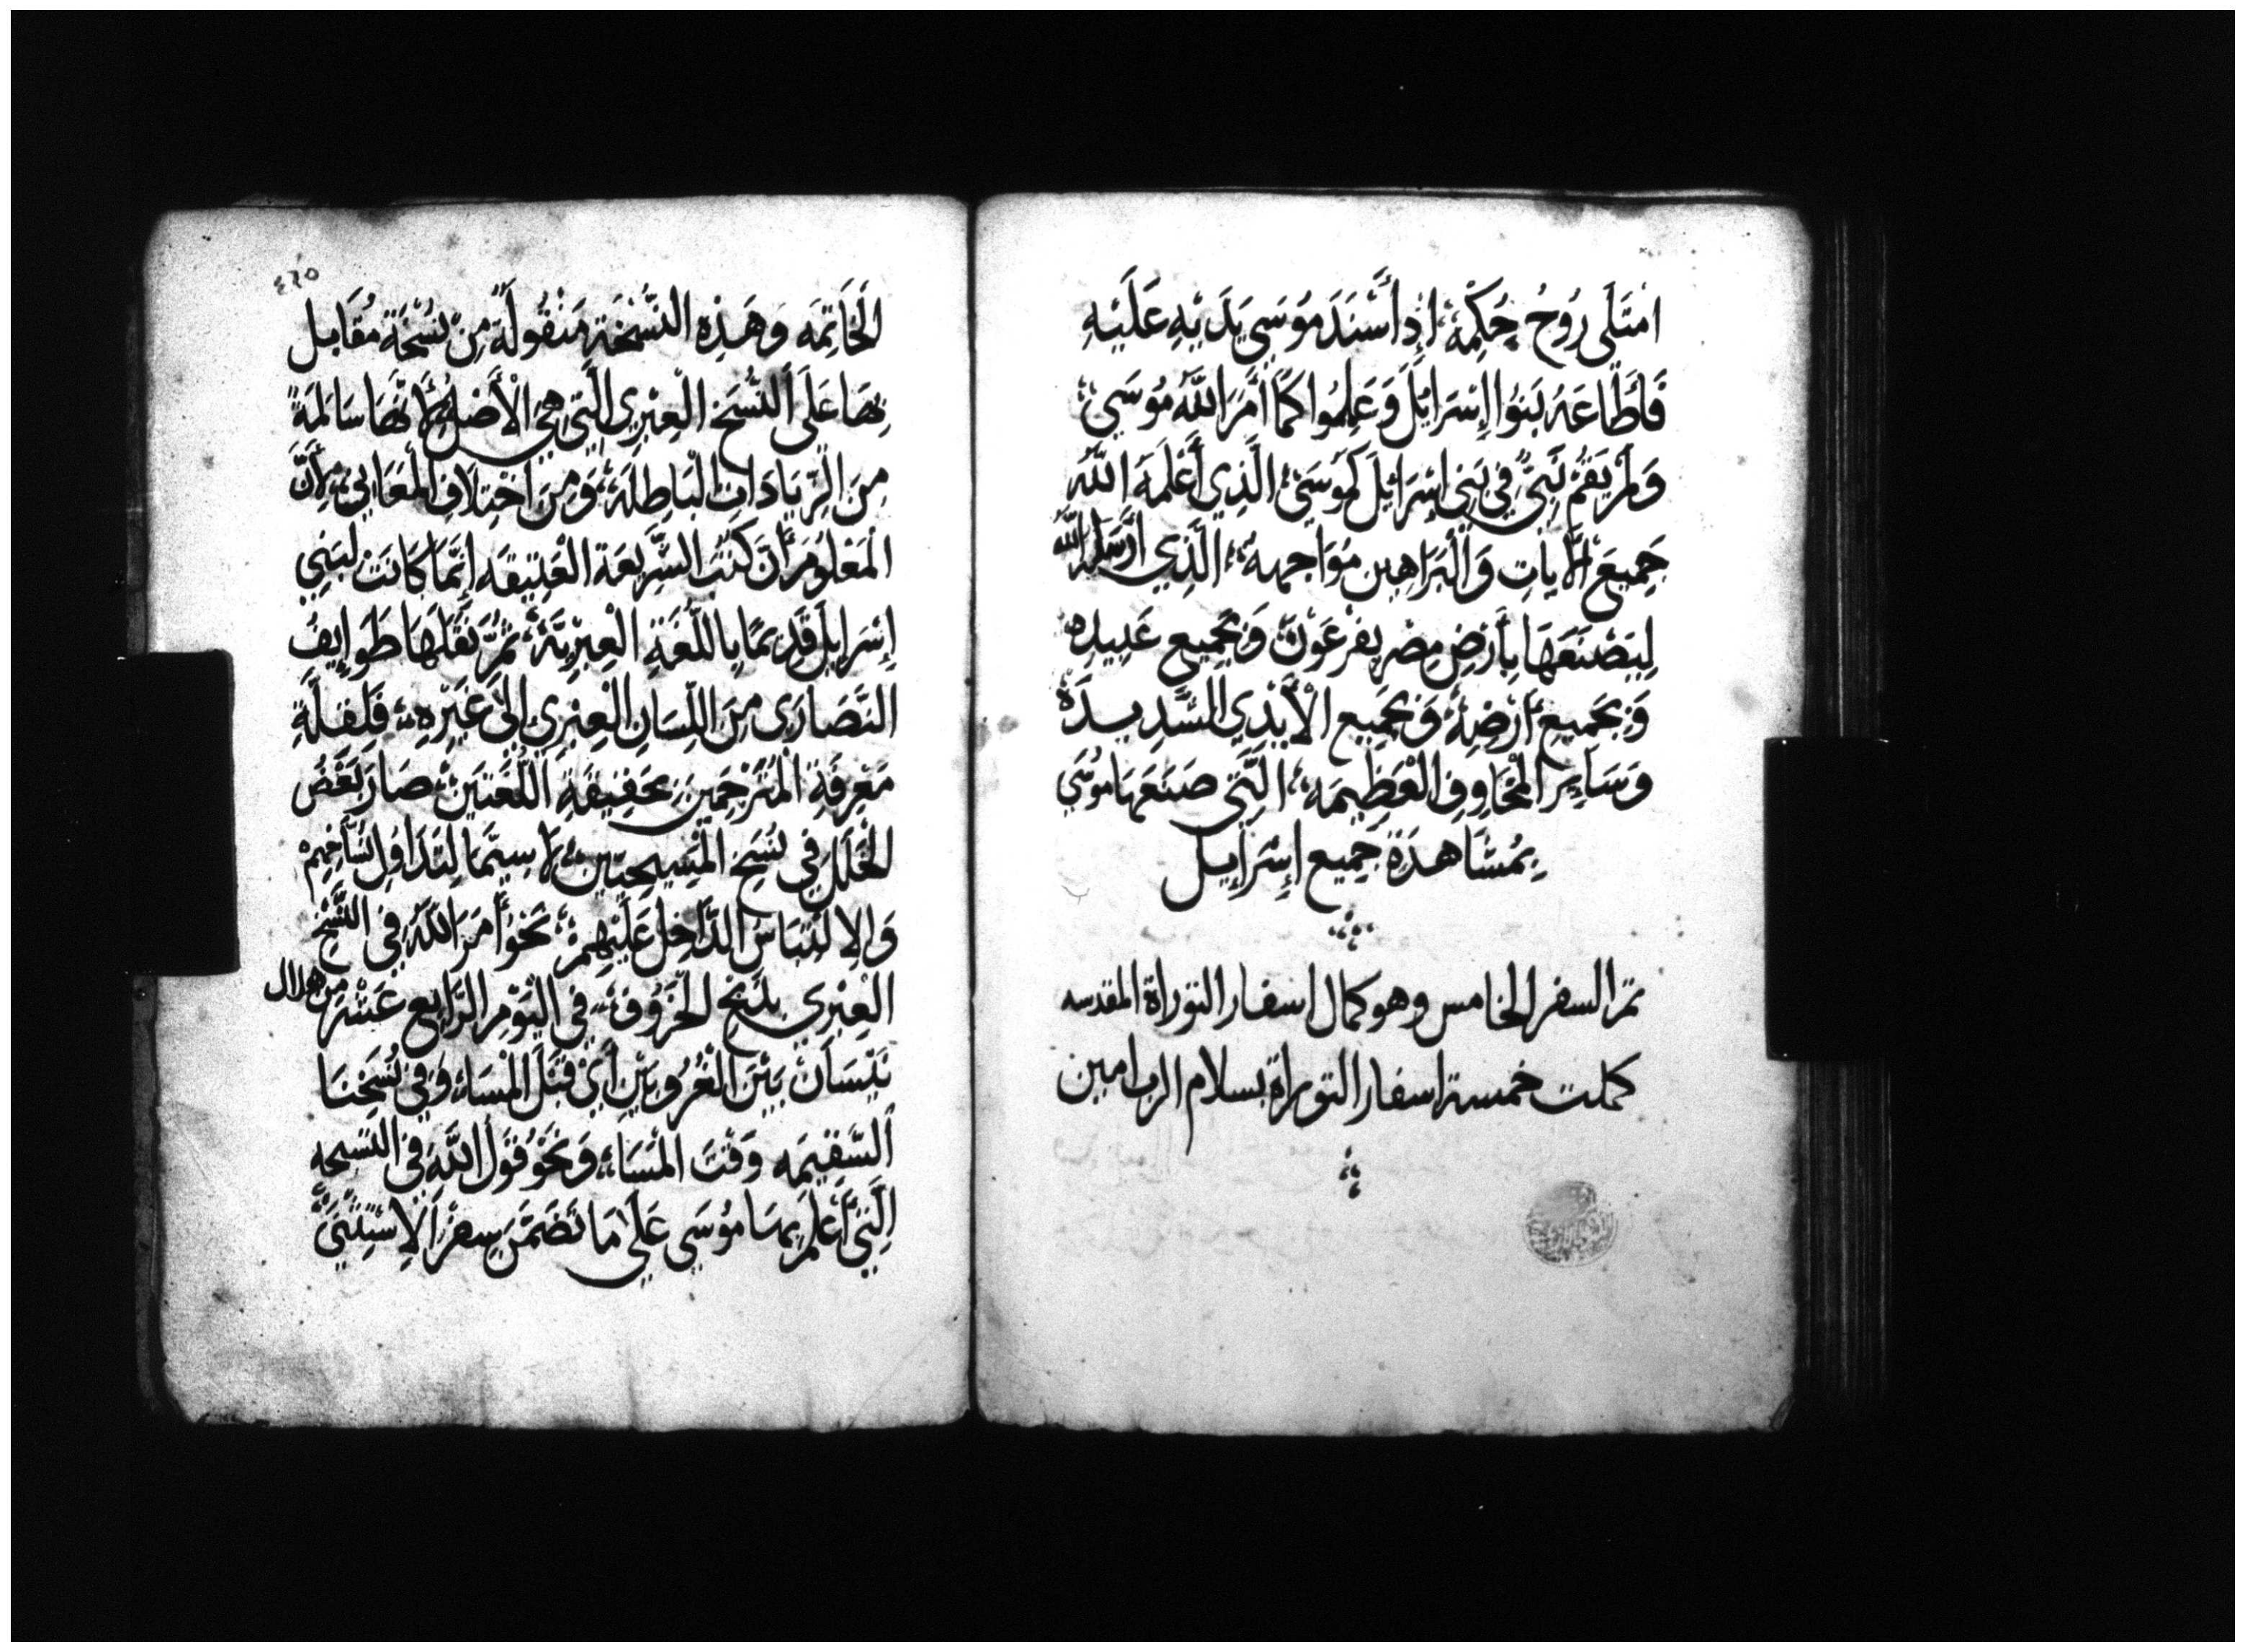 امْتَلَى رُوحُ حِكْمَةٍ إِذْ أَسْنَدَ مُوسَى يَدَيْهِ عَلَيْهِ
فَأَطَاعَهُ بَنُوا إِسْرَائِلَ وَعَمِلُوا كَمَا أَمَرَ اللَّهُ مُوسَى
وَلَمْ يَقُمْ نَبِيٌّ فِي بَنِي إِسْرَائِلَ كَمُوسَى الَّذِي أَعْلَمَهُ اللَّهُ
جَمِيعَ الْآيَاتِ وَالْبَرَاهِين مُوَاجهة الَّذِي أَرْسَلَهُ اللَّهُ
لِيَصْنَعَهَا بِأَرْضِ مِصْرَ بِفِرْعَوْنَ وَبِجَمِيعِ عَبِيدِهِ
وَبِجَمِيعِ أَرْضِهِ وَبِجَمِيعِ الْأَيْدِي الشَّدِيدَة
وَسَايِرِ الْمَخَاوِفِ الْعَظِيمَه الَّتِي صَنَعَهَا مُوسَى
بِمُشَاهَدَةِ جَمِيعِ إِسْرَايِل
تم السفر الخامس وهو كمال اسفار التوراة المقدسه
كملت خمسة اسفار التوراة بسلام الرب امين
٤٦٥
الْخَاتِمَه وَهَذِهِ النُّسْخَةِ مَنْقُولَةً مِنْ نُسْخَةٍ مُقَابل
بِهَا عَلَى النُّسَخِ الْعِبْرِي الَّتِي هِيَ الْأَصْلُ لِأَنَّهَا سَالِمَةً
مِنَ الزِّيَادَاتِ الْبَاطِلَةِ وَمِنَ اخْتِلَافِ الْمَعَانِي لِأَنَّ
الْمَعْلُومَ أَنَّ كُتُبَ الشَّرِيعَةِ الْعَتِيقَه إِنَّمَا كَانَتْ لِبَنِي
إِسْرَايلَ قَدِيمًا بِاللُّغَةِ الْعِبْرِيَّةِ ثُمَّ نَقَلَهَا طَوَايِفُ
النَّصَارَى مِنَ اللِّسَانِ الْعِبْرِي إِلَى غَيْرِهِ فَلِقِلَّةِ
مَعْرِفَةِ الْمُتَرْجِمِينَ بِحَقِيقَةِ اللُّغَتَيْنِ صَارَ بَعْضُ
الْخَلَلِ فِي نُسَخِ الْمَسِيحِيِّينَ لَا سِيَّمَا لِتَدَاوُلِ نُسَّاخِهِمْ
وَالِالْتِبَاسِ الدَّاخِلِ عَلَيْهِمْ نَحْوَ أَمَرَ اللَّهُ فِي النُّسَخِ
الْعِبْرِي بِذَبْحِ الْخَرُوفِ فِي الْيَوْمِ الرَّابِعِ عَشَرَ مِنْ هلال
نَيْسَانْ بَيْنَ الْغُرُوبَيْنِ أَيْ قَبْلَ الْمَسَاءِ وَفِي نُسَخِنَا
السَّقِيمَه وَقْتَ الْمَسَاءِ وَنَحْوَ قَوْلَ اللَّهِ فِي النسخه
الَّتِي أَعْلَمَ بِهَا مُوسَى عَلَى مَا تَضَمَّنَ سِفْرُ الِاسْتِثْنَى